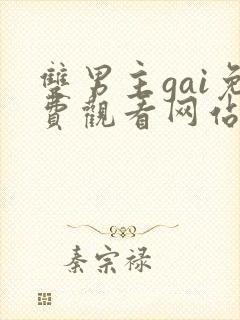 雙男主gai免
費觀看网佔
秦宗禄